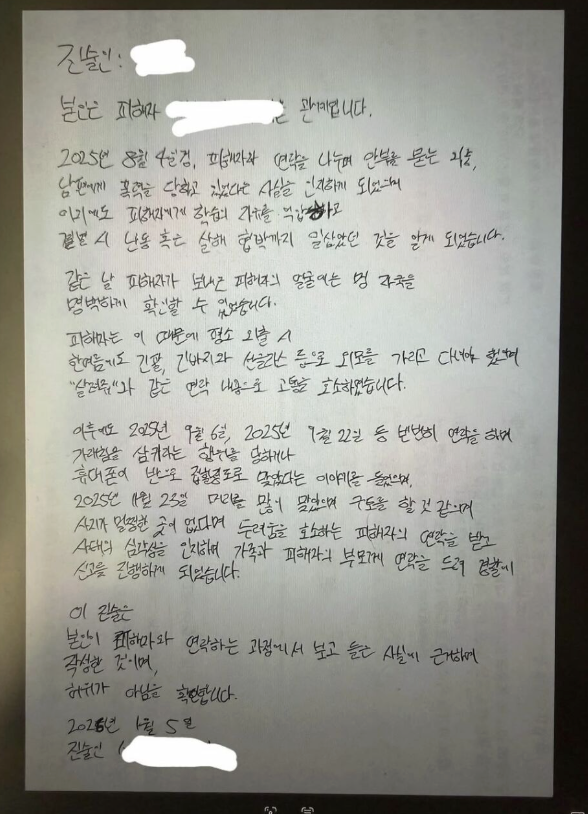 진술인:
본인은 피해자 관계입니다.
2025년 8월 4일경, 피해자와 연락을 나누며 안부를 묻는 과정,
남편에게 폭력을 당하고 있었다는 사실을 인지하게 되었으며
이외에도 피해자에게 학습의 자유를 억압하고
결별 시 난동 혹은 살해 협박까지 일삼았던 것을 알게 되었습니다.
같은 날 피해자가 보내온 피해자의 얼굴에는 멍 자국을
명백하게 확인할 수 있었습니다.
피해자는 이 때문에 평소 외출 시
한여름에도 긴팔, 긴바지와 선글라스 등으로 외모를 가리고 다녀야 했으며
"살려줘"와 같은 연락 내용으로 고통을 호소하였습니다.
이후에도 2025년 9월 6일, 2025년 9월 22일 등 빈번히 연락을 하며
가래침을 삼키라는 행위를 당하거나
휴대폰이 반으로 접힐정도로 맞았다는 이야기를 들었으며,
2025년 11월 23일 머리를 많이 맞았으며 구토를 할 것 같으며
사지가 멀쩡한 곳이 없다며 두려움을 호소하는 피해자의 연락을 받고
사태의 심각성을 인지하여 가족과 피해자의 부모께 연락을 드려 경찰에
신고를 진행하게 되었습니다.
이 진술은
본인이 피해자와 연락하는 과정에서 보고 들은 사실에 근거하여
작성한 것이며,
허위가 아님을 확인합니다.
2026년 1월 5일
진술인